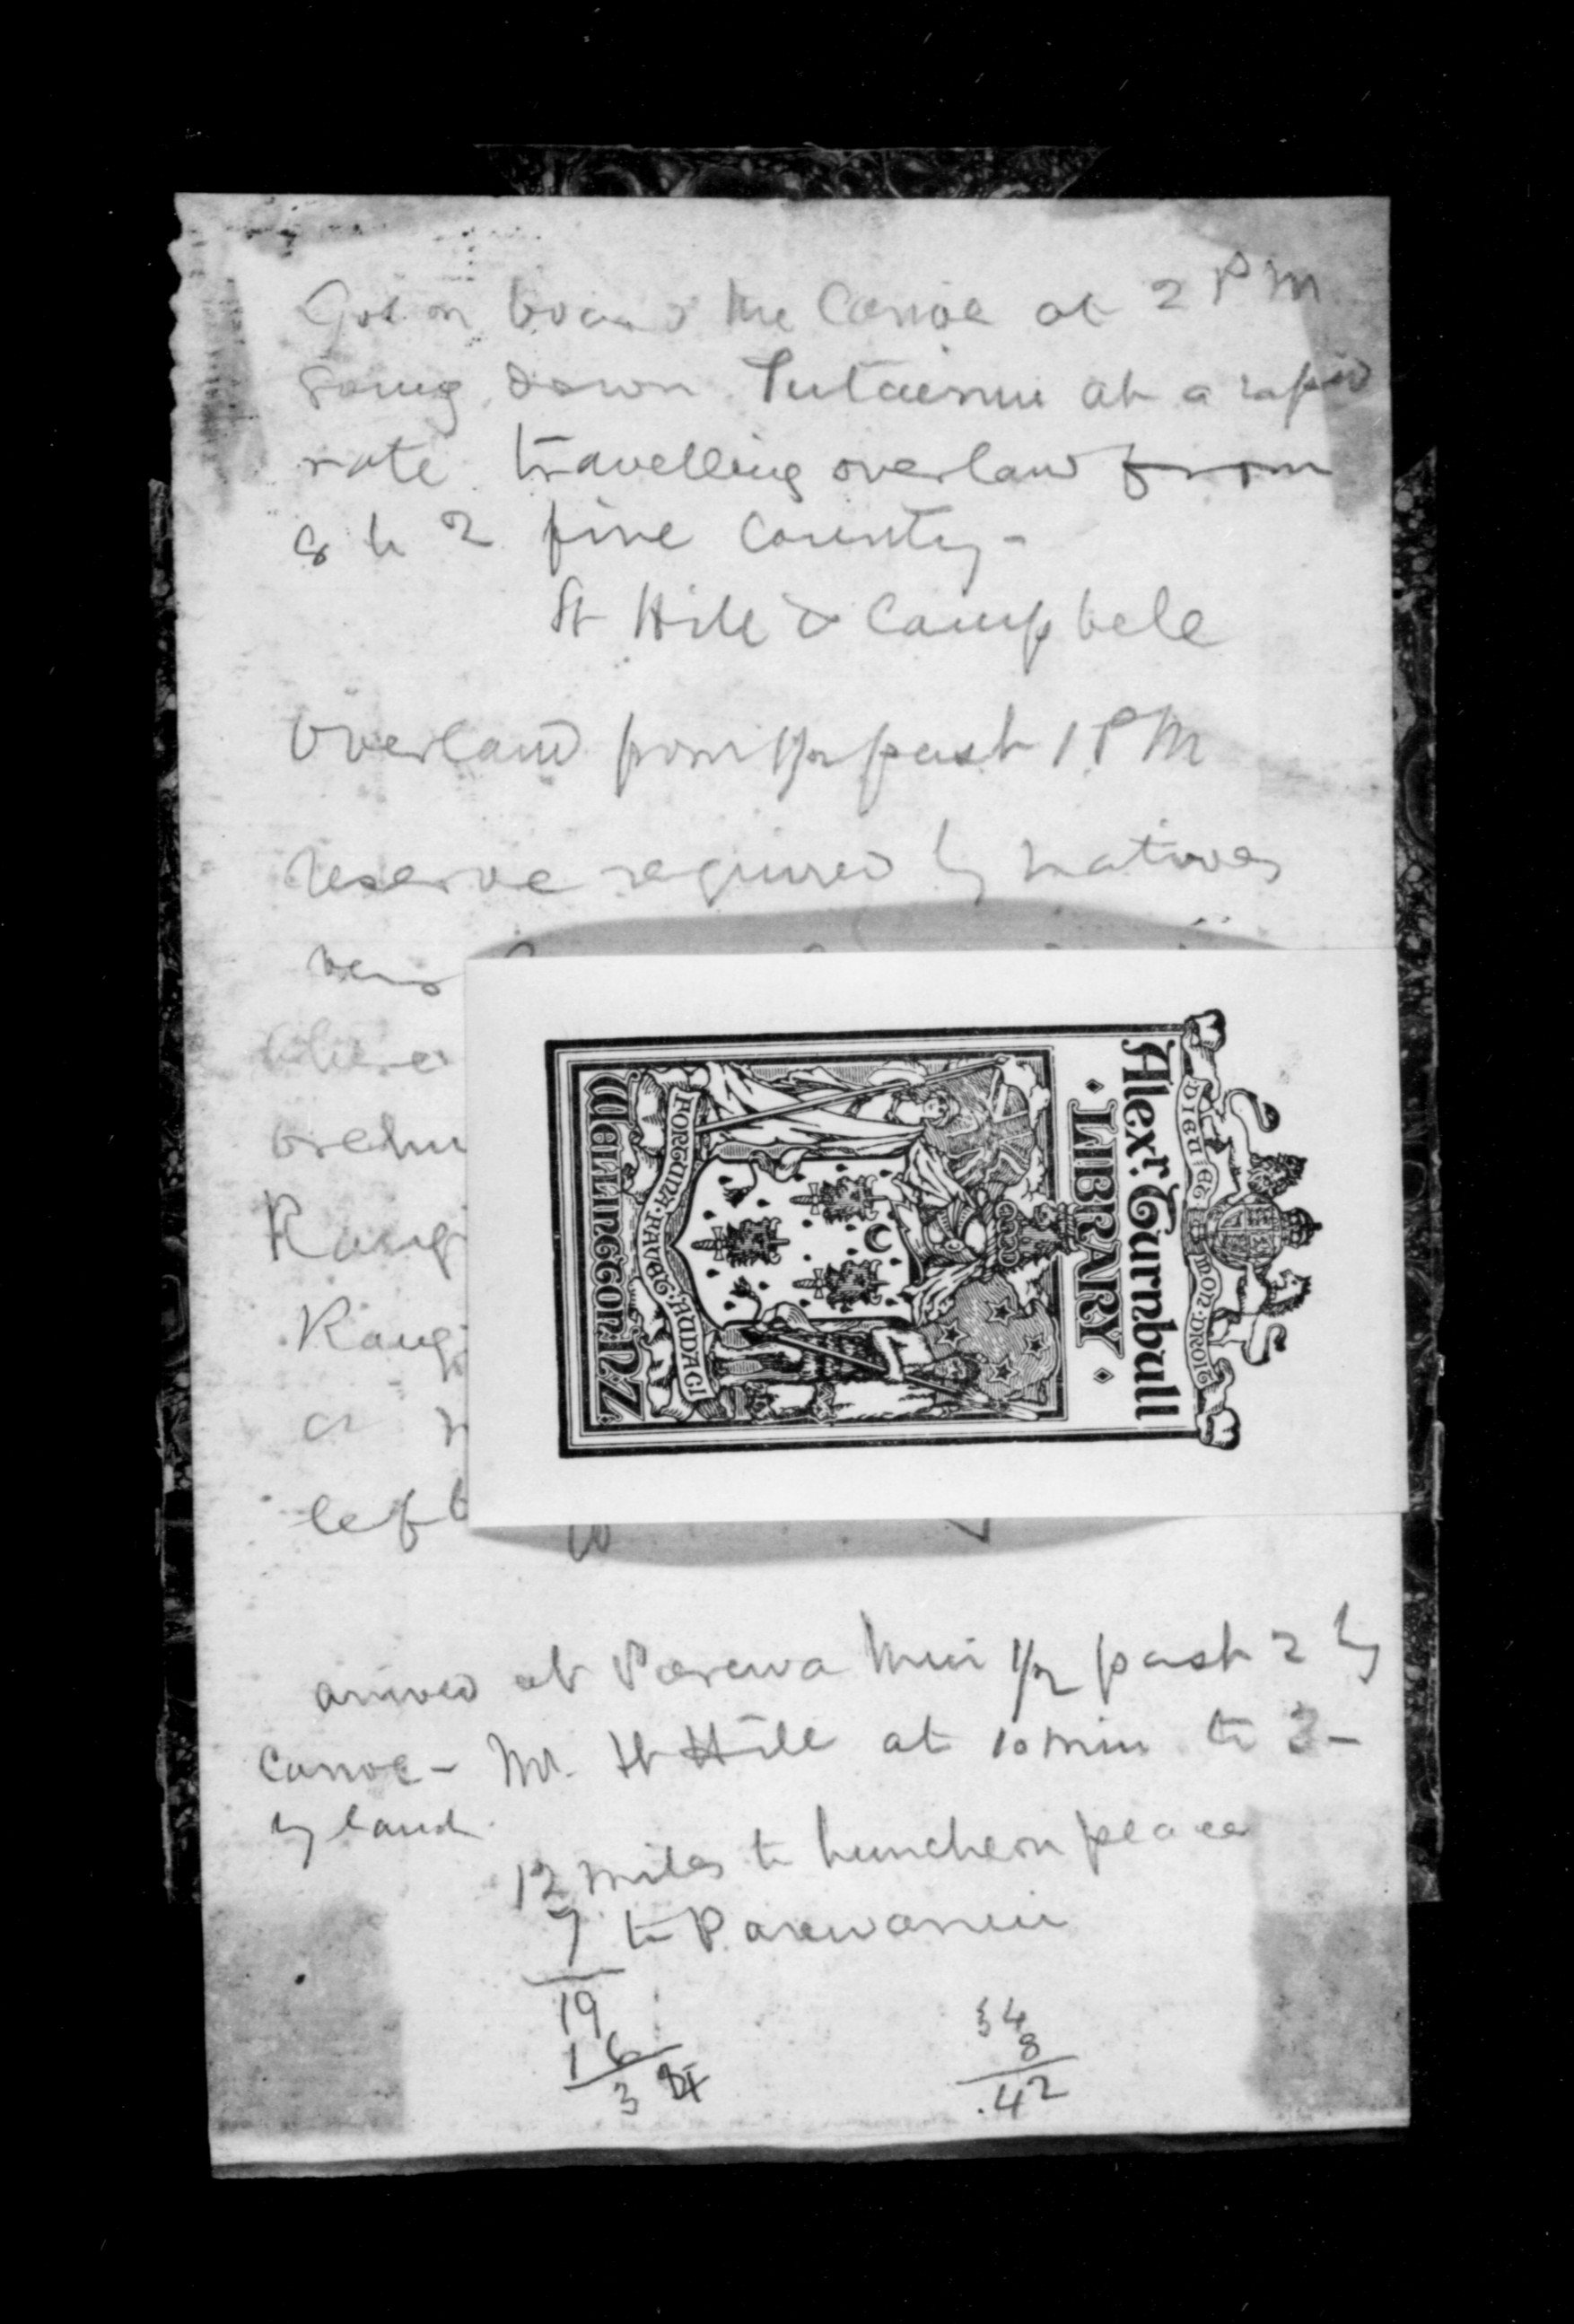 Got on board the Canoe at 2 PM
Going down Tutaenui at a rapid
rate travelling overland from
8 to 2 fine Country -
St Hill & Campbell
Overland from 1/2 past 1 PM
reserve required by natives
Rangi
Rangi
or
left
arrived at Parewa Nui 1/2 past 2 by
Canoe - Mr. St Hill at 10 min to 3 -
by land
12 miles to luncheon place
7 to Parewanui
19
16
3
34
8
42
Alexr. Turnbull
LIBRARY
DIEU ET MON DROIT
FORTUNA FAVET AUDACI
WELLINGTON N.Z.